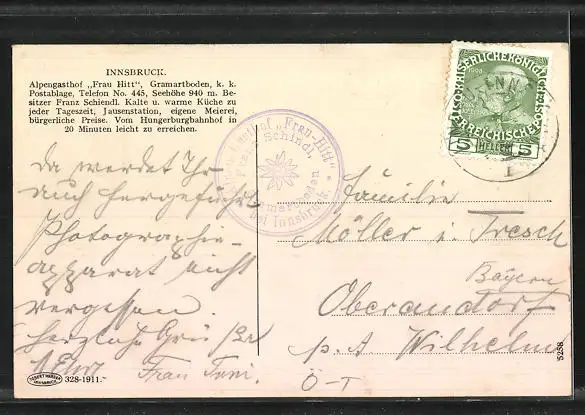 INNSBRUCK.
Alpengasthof „Frau Hitt“, Gramartboden, k. k.
Postablage, Telefon No. 445, Seehöhe 940 m. Be-
sitzer Franz Schiendl. Kalte u. warme Küche zu
jeder Tageszeit, Jausenstation, eigene Meierei,
bürgerliche Preise. Vom Hungerburgbahnhof in
20 Minuten leicht zu erreichen.
KAISERLICHE KÖNIGLICHE
ÖSTERREICHISCHE POST
5 HELLER 5
Gasthof „Frau-Hitt“
bei Innsbruck.
Da werdet Ihr
auch hergeführt
Photographie-
apparat nicht
vergessen.
Herzliche Grüße
Frau Tuni.
Familie
Möller i.
Bayern
Oberaudorf
p. A. Wilhelm
Ö-T
328-1911.
5258